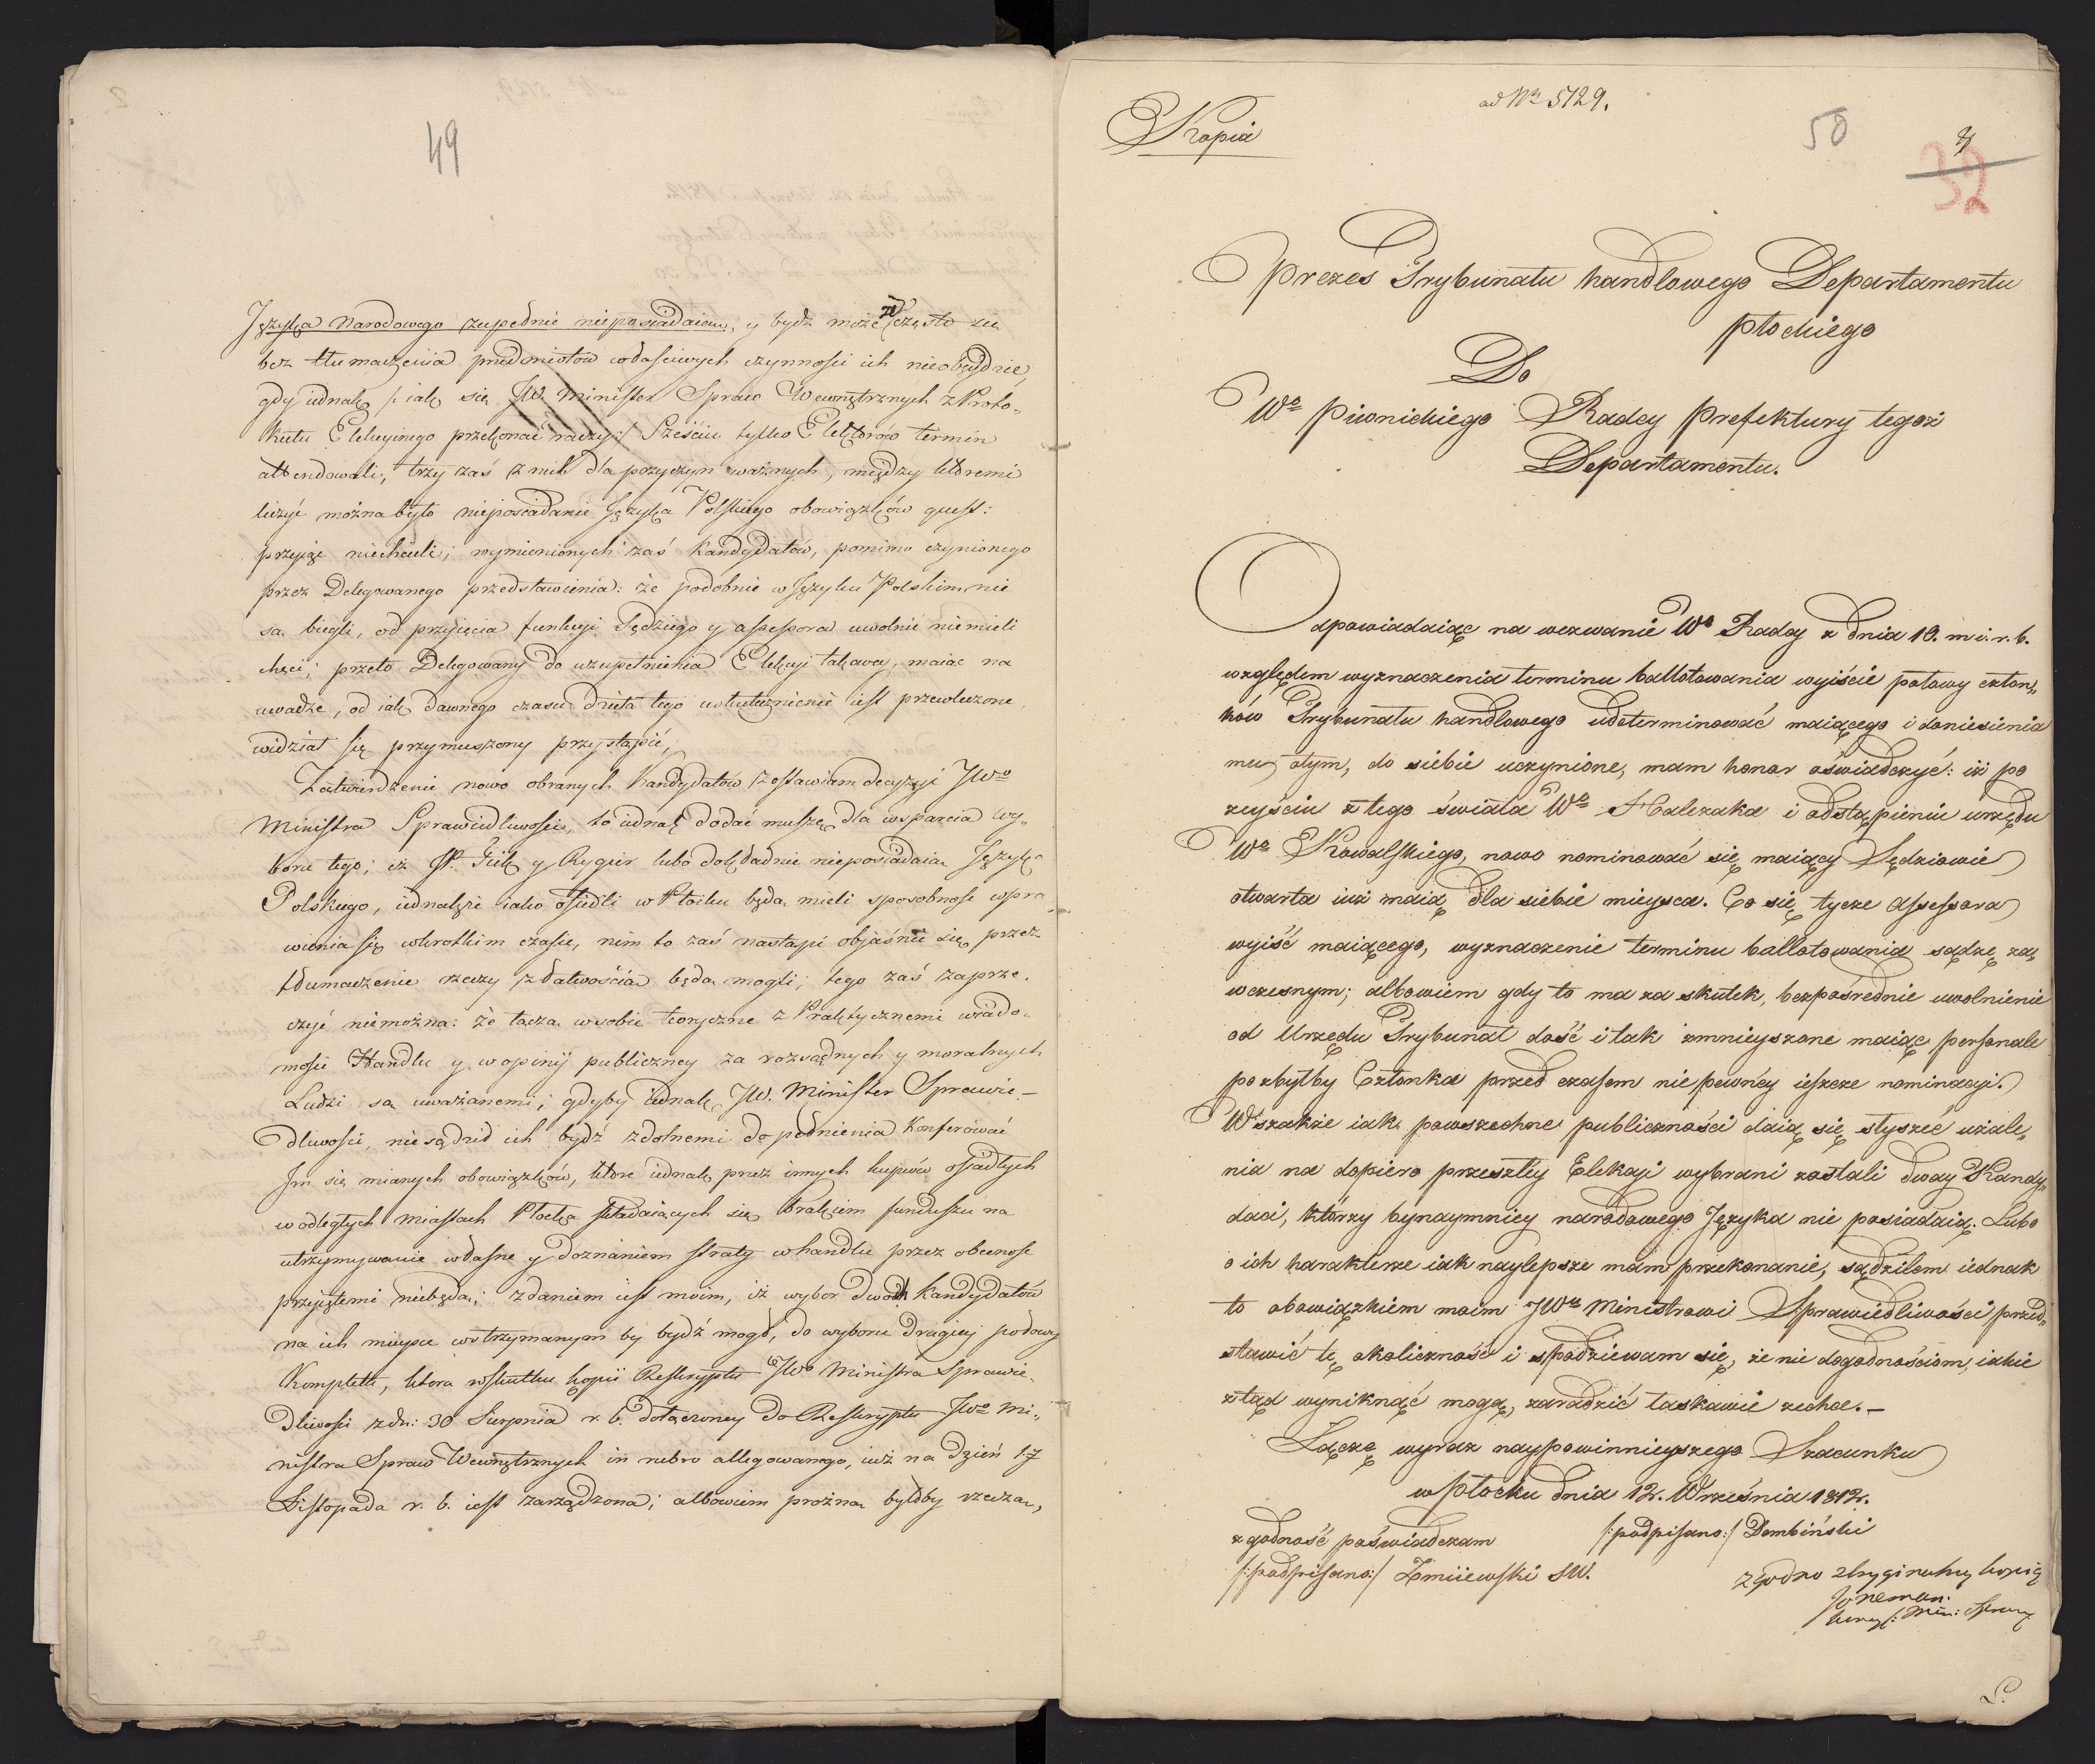 49
Języka Narodowego zupełnie nieposiadaiom, y bydź może że często się
bez tłumaczenia przedmiotów właściwych czynności ich nieobęydzie,
gdy iednak /: iak się JW. Minister Spraw Wewnętrznych z Proto„
kułu Elekcyinego przekonać raczy :/ Sześciu tylko Elektorów termin
attendowali, trzy zaś z nich dla przyczyn ważnych, między któremi
liczyć można było nieposiadanie Języka Polskiego obowiązków quest:
przyiąć niechcieli; wymienionych zaś Kandydatów, pomimo czynionego
przez Delegowanego przedstawienia: że podobnie w Języku Polskim nie
są biegli, od przyięcia funkcyi Sędziego y assessora uwolnić niemieli
chęci; przeto Delegowany do uzupełnienia Elekcyi takowey, maiąc na
uwadze, od iak dawnego czasu dzieła tego uskutecznienie iest przewleczone
widział się przymuszony przystąpić,
Zatwierdzenie nowo obranych Kandydatów zostawiam decyzyi JWo
Ministra Sprawiedliwości, to iednak dodać muszę dla wsparcia wy„
boru tego; iż PP. Gük y Rygier lubo dokładnie nieposiadaią Języka
Polskiego, iednakże iako osiedli w Płocku będą mieli sposobność wpra„
wienia się w krótkim czasie, nim to zaś nastąpi objaśnić się przez
tłumaczenie rzeczy z łatwością będą mogli; tego zaś zaprze„
czyć niemożna: że łączą w sobie teoryczne z Praktycznemi wiado„
mości Handlu y w opinij publiczney za rozsądnych y moralnych
Ludzi są uważanemi; gdyby iednak JW. Minister Sprawie„
dliwości, nie sądził ich bydź zdolnemi do pełnienia Konferować
Im się mianych obowiązków, które iednak przez innych kupców osiadłych
w odległych miastach Płocka składaiących się brakiem funduszu na
utrzymywanie własne y doznaniem straty w handlu przez obecność
przyiętemi niebędą; zdaniem iest moim, iż wybór dwóch Kandydatów
na ich mieysce wstrzymanym by bydź mógł, do wyboru drugiey połowy
Kompletu, która w skutku kopii Reskryptu JWo Ministra Sprawie„
dliwości z dn: 30 Sierpnia r. b. dołączoney do Reskryptu JWo Mi„
nistra Spraw Wewnętrznych in rubro allegowanego, iuż na dzień 17
Listopada r. b. iest zarządzona; albowiem próżną byłoby rzeczą,
ad Nr 5129.
Kopia
50
32
Prezes Trybunału handlowego Departamentu
płockiego
Do
Wo Piwnickiego Radcy Prefektury tegoż
Departamentu.
Odpowiadaiąc na wezwanie Wo Radcy z dnia 10. m. i. r. b.
względem wyznaczenia terminu ballotowania wyiście połowy człon„
ków Trybunału handlowego udeterminować maiącego i doniesienia
mu o tym, do siebie uczynione, mam honor oświadczyć: iż po
zeyściu z tego świata Wo Halczaka i odstąpieniu urzędu
Wo Kowalskiego, nowo nominować się maiący Sędziowie
otwarta iuż maią dla siebie mieysca. Co się tycze Assessora
wyiść maiącego, wyznaczenie terminu ballotowania sądzę za„
wczesnym; albowiem gdy to ma za skutek, bezpośrednie uwolnienie
od Urzędu Trybunał dość i tak zmnieyszone maiąc personale
pozbyłby Członka przed czasem niepewney ieszcze nominacyi.
Wszakże iak powszechne publiczności daią się słyszeć użale„
nia na dopiero przeszłey Elekcyi wybrani zostali dway Kandy„
daci, którzy bynaymniey narodowego Języka nie posiadaią. Lubo
o ich harakterze iak naylepsze mam przekonanie, sądziłem iednak
to obowiązkiem moim JWu Ministrowi Sprawiedliwości przed„
stawić tę okoliczność i spodziewam się, że nie dogodnościom, iakie
ztąd wyniknąć mogą, zaradzić łaskawie zechce.—
Łączę wyraz naypowinnieyszego Szacunku
w Płocku dnia 12. Września 1812.
/:podpisano:/ Dembiński
zgodność poświadczam
/:podpisano:/ Żmiiewski SW.
Zgodno z oryginalną kopią